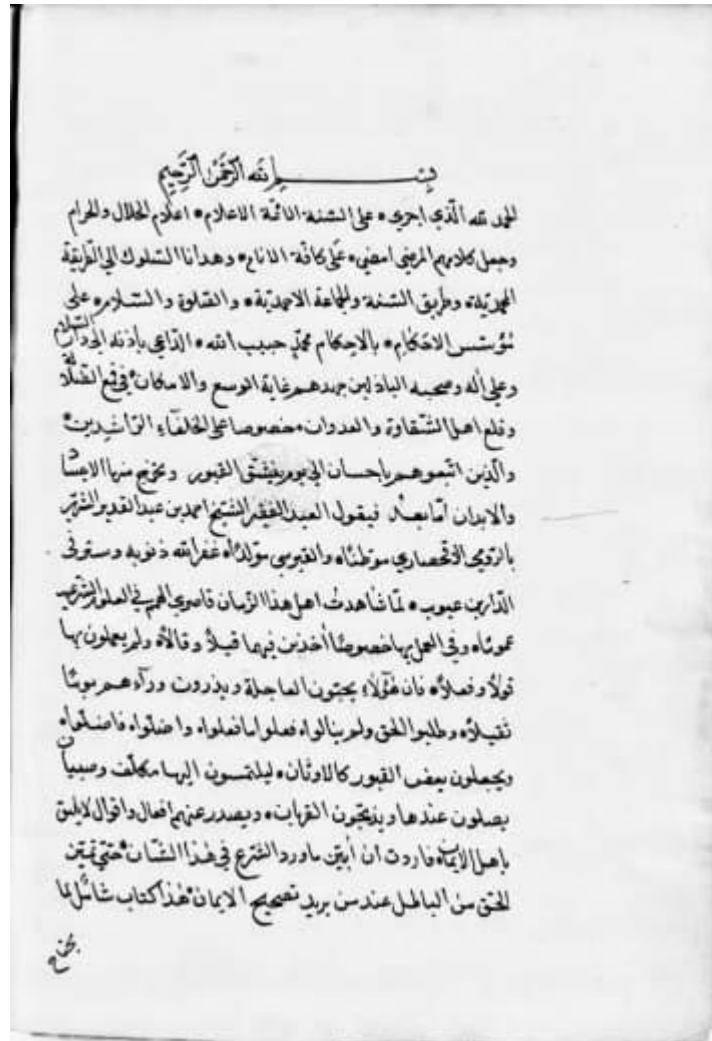 بسم الله الرحمن الرحيم
الحمد لله الذي اجرى على السنة الائمة الاعلام اعلام الحلال والحرام
وجعل كلامهم المرضى امضى على كافة الانام وهدانا السلوك الى الطريقة
المحمدية وطريق السنة والجماعة الاحمدية والصلوة والسلام على
مؤسس الاحكام بالاحكام محمد حبيب الله الداعي باذنه الى دار السلام
وعلى اله وصحبه الباذلين جهدهم غاية الوسع والامكان في قمع الضلالة
وقلع اهل الشقاوة والعدوان خصوصا على الخلفاء الراشدين
والذين اتبعوهم باحسان الى يوم ينشق القبور ويخرج منها الاجساد
والابدان اما بعد فيقول العبد الفقير الشيخ احمد بن عبد القدير الشهير
بالرومى الاقحصاري موطناه والقبرسي مولداه غفر الله ذنوبه وستر في
الدارين عيوبه لما شاهدت اهل هذا الزمان قاصري الهمم في العلوم الشرعية
عموماه وفي العمل بها خصوصا اخذين فيها قيلا وقالاه ولم يعملون بها
قولا وفعلاه فان هؤلاء يحبون العاجلة ويذرون ورآءهم يوما
ثقيلاه وطلبوا الحق ولم ينالواه فعلوا ما فعلواه واضلواه فاضلواه
ويجعلون بعض القبور كالاوثانه ليلتمسون اليها مكلف وصبيان
يصلون عندها ويذبحون القربان ويصدر عنهم افعال واقوال لا يليق
باهل الايمان فاردت ان ابين ما ورد الشرع في هذا الشان حتى تميز
الحق من الباطل عند من يريد تصحيح الايمان هذا كتاب شامل لما